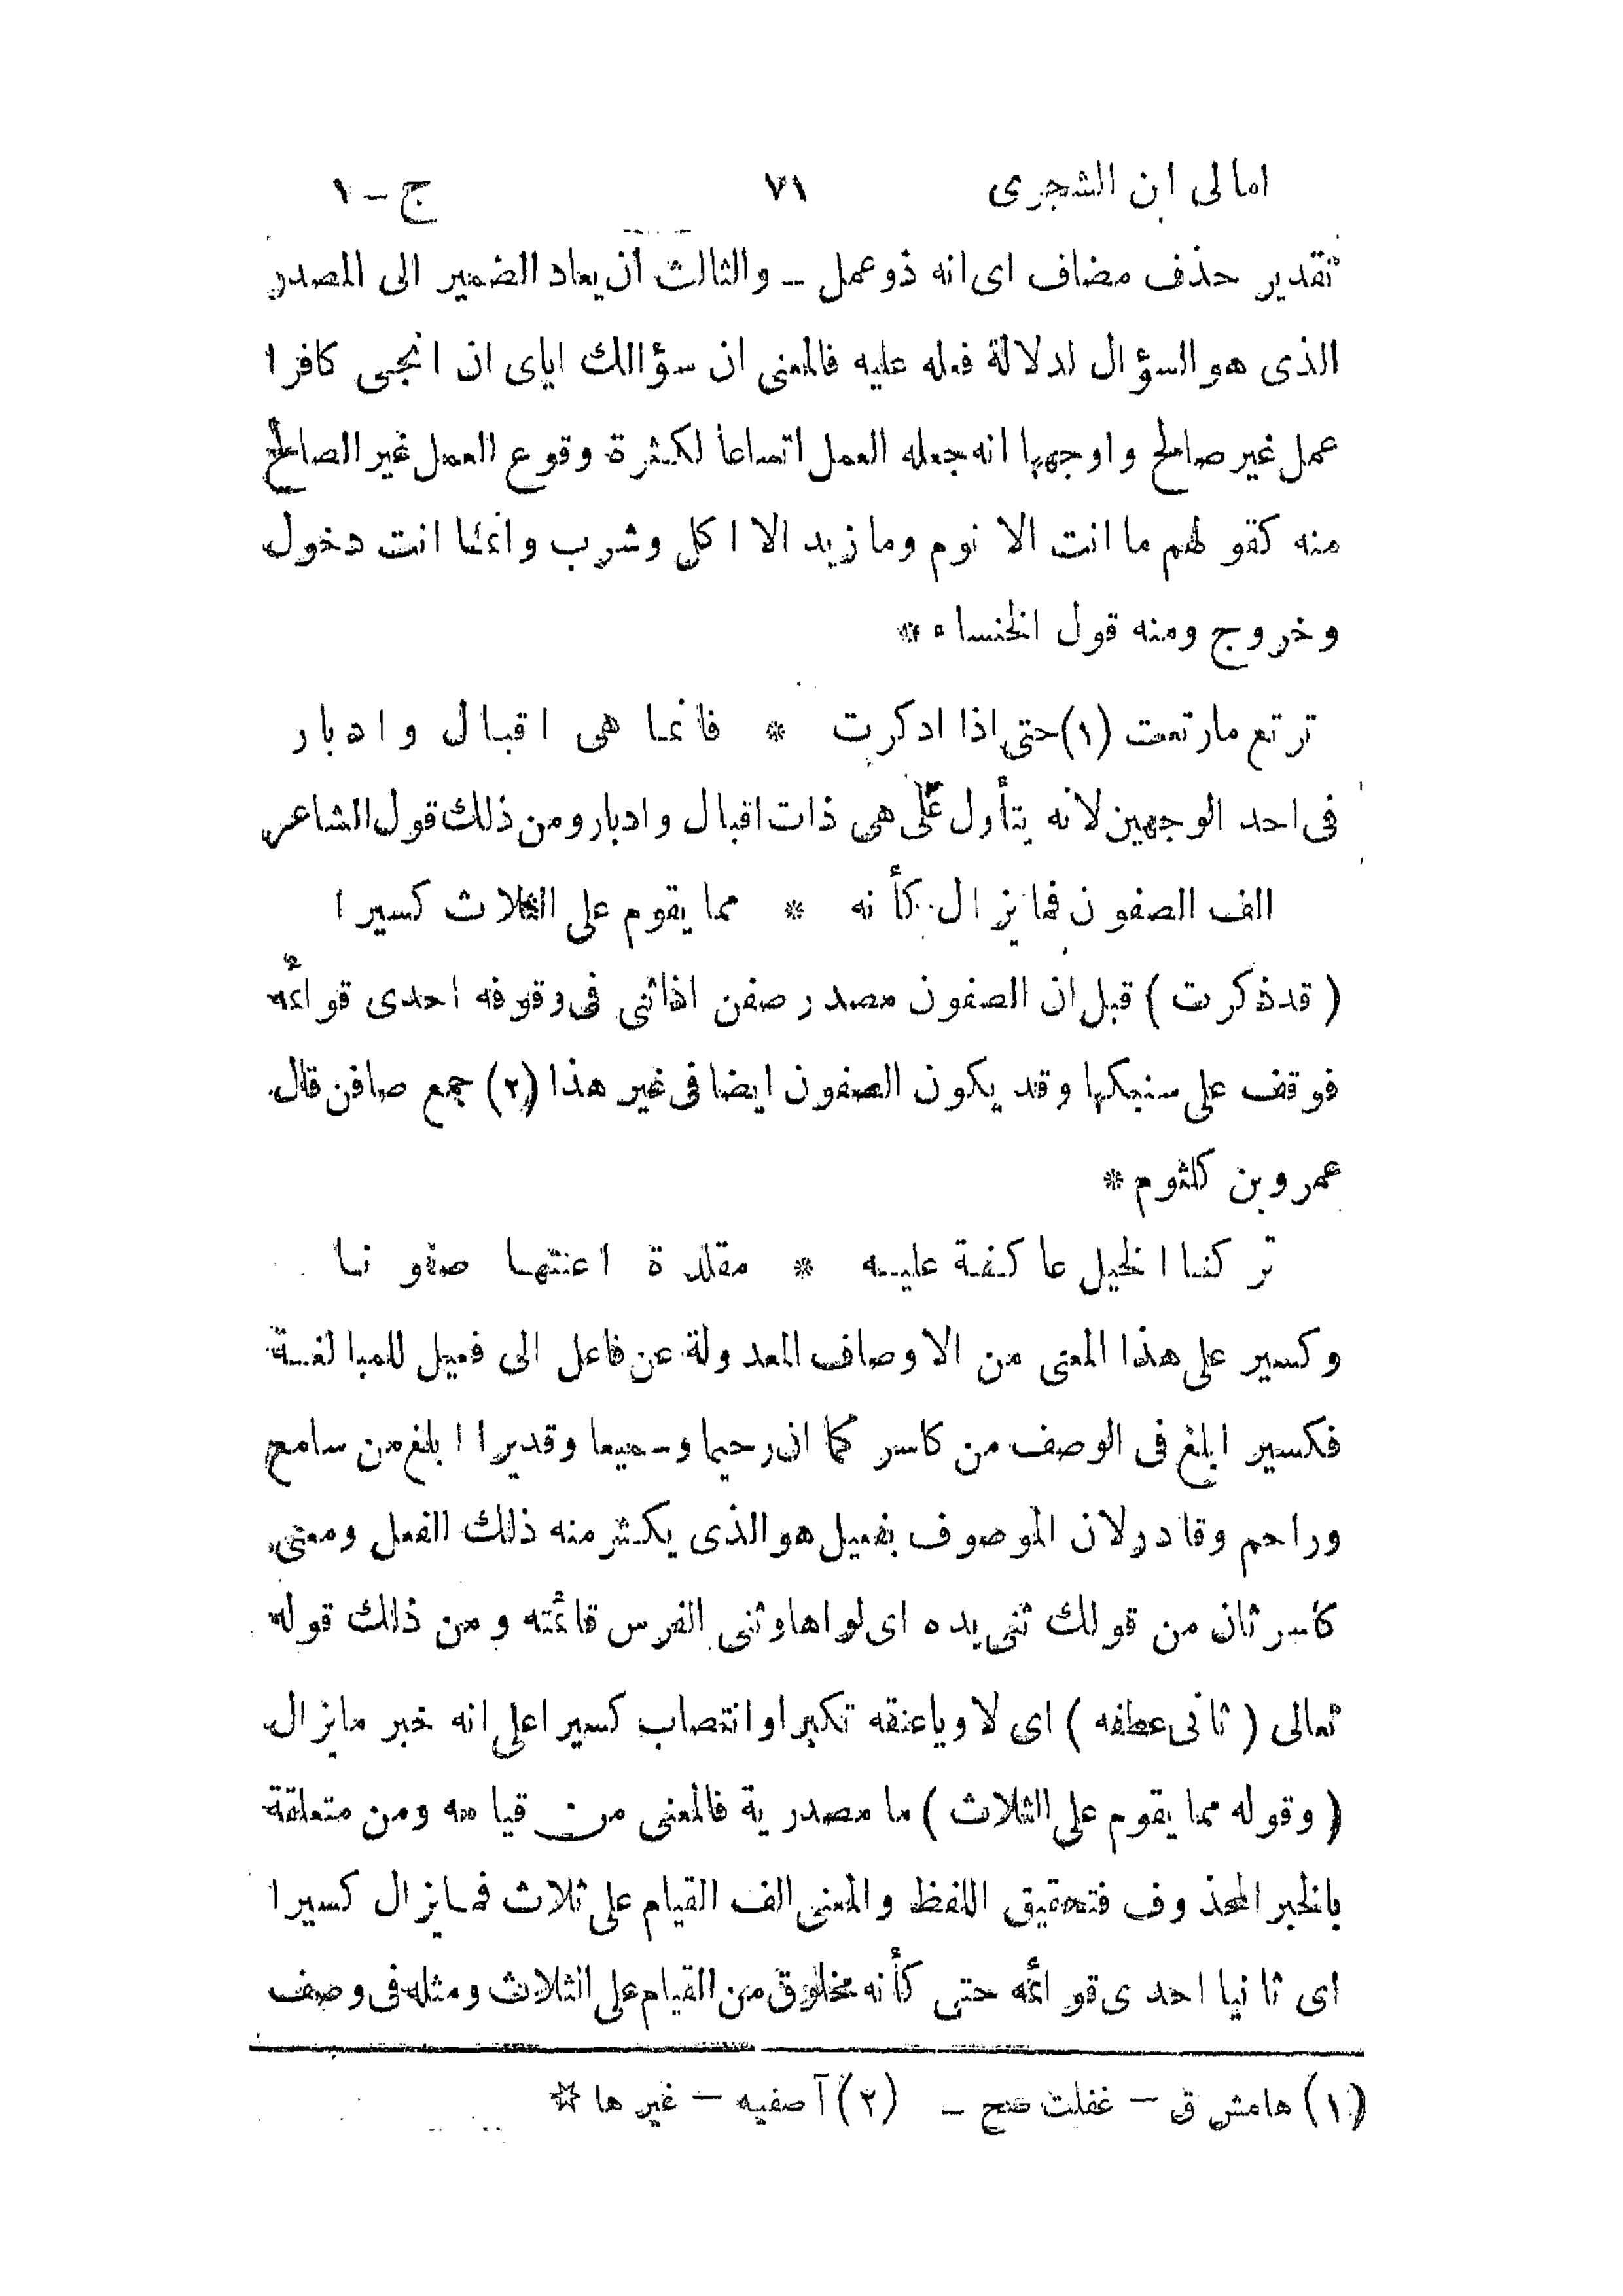 امالى ابن الشجرى ٧١ ج – ١
تقدير حذف مضاف اى انه ذو عمل – والثالث ان يعاد الضمير الى المصدر
الذى هو السؤال لدلالة فعله عليه فالمعنى ان سؤالك اياى ان انجى كافرا
عمل غير صالح واوجهها انه جعله العمل اتساعا لكثرة وقوع العمل غير الصالح
منه كقولهم ما انت الا نوم وما زيد الا اكل وشرب وانما انت دخول
وخروج ومنه قول الخنساء *
ترتع ما رتعت (١) حتى اذا ادكرت * فانما هى اقبال وادبار
فى احد الوجهين لانه يتأول على هى ذات اقبال وادبار ومن ذلك قول الشاعر
الف الصفون فما يزال كأنه * مما يقوم على الثلاث كسيرا
( قد ذكرت ) قبل ان الصفون مصدر صفن اذا ثنى فى وقوفه احدى قوائمه
فوقف على سنبكها وقد يكون الصفون ايضا فى غير هذا (٢) جمع صافن قال
عمرو بن كلثوم *
تركنا الخيل عاكفة عليه * مقلدة اعنتها صفونا
وكسير على هذا المعنى من الاوصاف المعدولة عن فاعل الى فعيل للمبالغة
فكسير ابلغ فى الوصف من كاسر كما ان رحيما وسميعا وقديرا ابلغ من سامع
وراحم وقادر لان الموصوف بفعيل هو الذى يكثر منه ذلك الفعل ومعنى
كاسر ثان من قولك ثنى يده اى لواها وثنى الفرس قائمته ومن ذلك قوله
تعالى ( ثانى عطفه ) اى لاويا عنقه تكبرا وانتصاب كسيرا على انه خبر ما يزال
( وقوله مما يقوم على الثلاث ) ما مصدرية فالمعنى من قيامه ومن متعلقة
بالخبر المحذوف فتحقيق اللفظ والمعنى الف القيام على ثلاث فما يزال كسيرا
اى ثانيا احدى قوائمه حتى كأنه مخلوق من القيام على الثلاث ومثله فى وصف
(١) هامش ق – غفلت صح – (٢) آصفيه – غيرها *